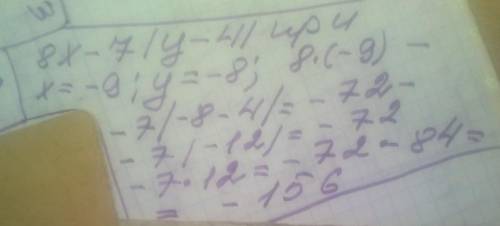 8x - 7|y - 4| при
x = -9; y = -8; 8·(-9) -
- 7|-8 - 4| = - 72 -
- 7|-12| = - 72
- 7·12 = - 72 - 84 =
= - 156